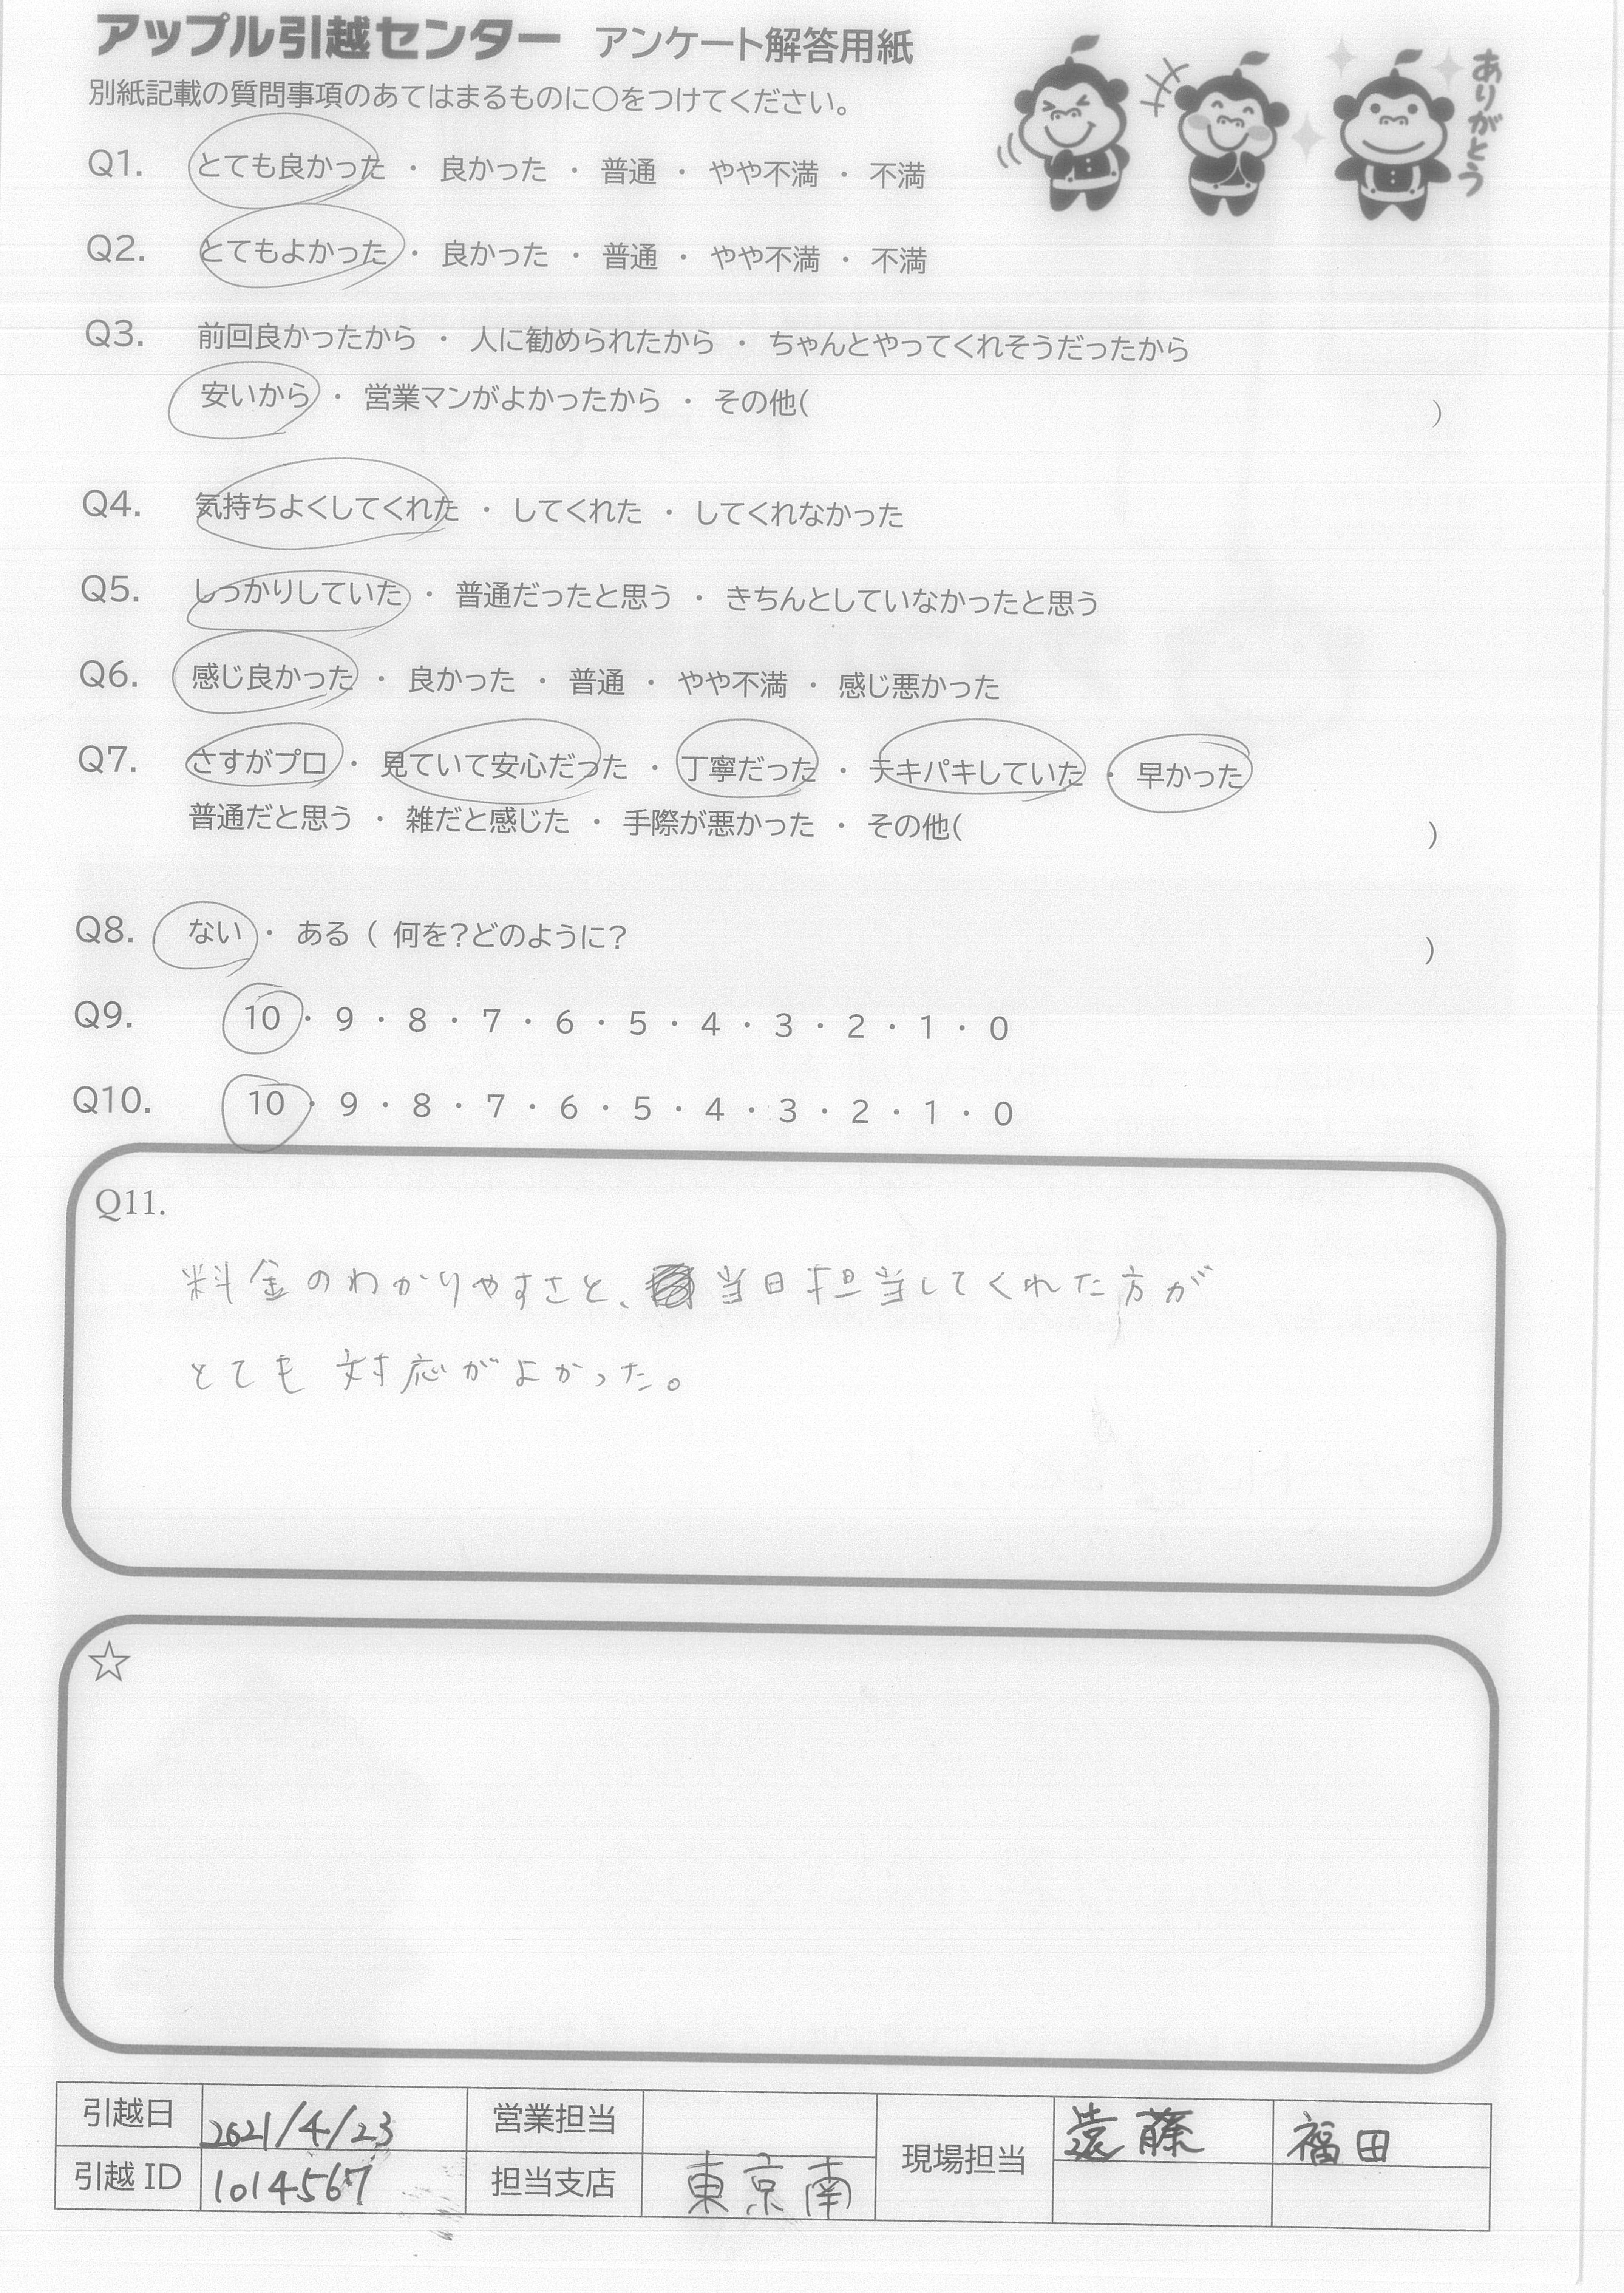 アップル引越センター アンケート解答用紙
ありがとう
別紙記載の質問事項のあてはまるものに〇をつけてください。
Q1. とても良かった ・ 良かった ・ 普通 ・ やや不満 ・ 不満
Q2. とてもよかった ・ 良かった ・ 普通 ・ やや不満 ・ 不満
Q3. 前回良かったから ・ 人に勧められたから ・ ちゃんとやってくれそうだったから
安いから ・ 営業マンがよかったから ・ その他( )
Q4. 気持ちよくしてくれた ・ してくれた ・ してくれなかった
Q5. しっかりしていた ・ 普通だったと思う ・ きちんとしていなかったと思う
Q6. 感じ良かった ・ 良かった ・ 普通 ・ やや不満 ・ 感じ悪かった
Q7. さすがプロ ・ 見ていて安心だった ・ 丁寧だった ・ テキパキしていた ・ 早かった
普通だと思う ・ 雑だと感じた ・ 手際が悪かった ・ その他( )
Q8. ない ・ ある ( 何を?どのように? )
Q9. 10 ・ 9 ・ 8 ・ 7 ・ 6 ・ 5 ・ 4 ・ 3 ・ 2 ・ 1 ・ 0
Q10. 10 ・ 9 ・ 8 ・ 7 ・ 6 ・ 5 ・ 4 ・ 3 ・ 2 ・ 1 ・ 0
Q11.
料金のわかりやすさと、当日担当してくれた方が
とても対応がよかった。
☆
引越日 2021/4/23 営業担当 現場担当 遠藤 福田
引越 ID 1014567 担当支店 東京南